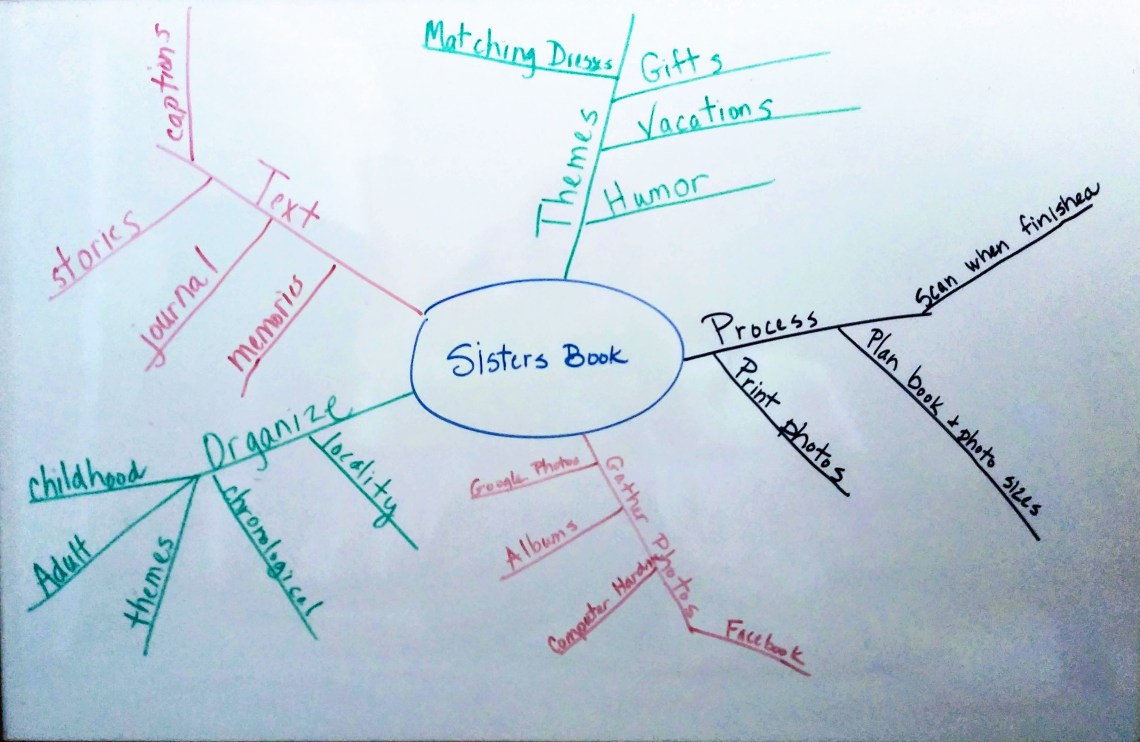 Sisters Book
Themes
Matching Dresses
Gifts
Vacations
Humor
Process
Scan when finished
Plan book + photo sizes
Print photos
Gather Photos
Google Photos
Albums
Computer
Facebook
Organize
locality
chronological
themes
Adult
childhood
Text
captions
stories
Journal
memories